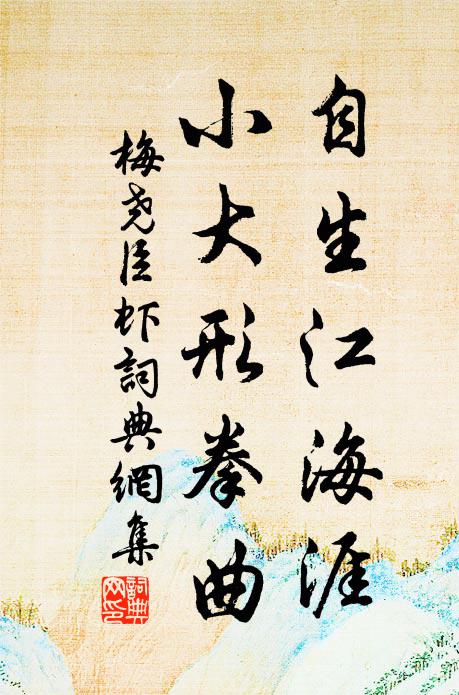 自生江海涯
小大形拳曲
梅尧臣虾詞典網集
詞典